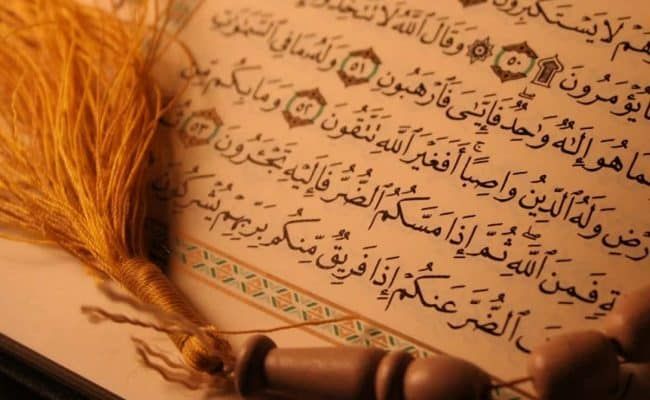 هُمْ لَا يَسْتَكْبِرُونَ
مَا يُؤْمَرُونَ ۩ ٥٠ ۞ وَقَالَ ٱللَّهُ لَا تَتَّخِذُوٓا۟
مَا هُوَ إِلَٰهٌ وَٰحِدٌ ۖ فَإِيَّٰىَ فَٱرْهَبُونِ ٥١ وَلَهُۥ مَا فِى ٱلسَّمَٰوَٰتِ
رْضِ وَلَهُ ٱلدِّينُ وَاصِبًا ۚ أَفَغَيْرَ ٱللَّهِ تَتَّقُونَ ٥٢ وَمَا بِكُم مِّن
ةٍ فَمِنَ ٱللَّهِ ۖ ثُمَّ إِذَا مَسَّكُمُ ٱلضُّرُّ فَإِلَيْهِ تَجْـَٔرُونَ ٥٣ ثُمَّ
ٱلضُّرَّ عَنكُمْ إِذَا فَرِيقٌ مِّنكُم بِرَبِّهِمْ يُشْرِكُونَ